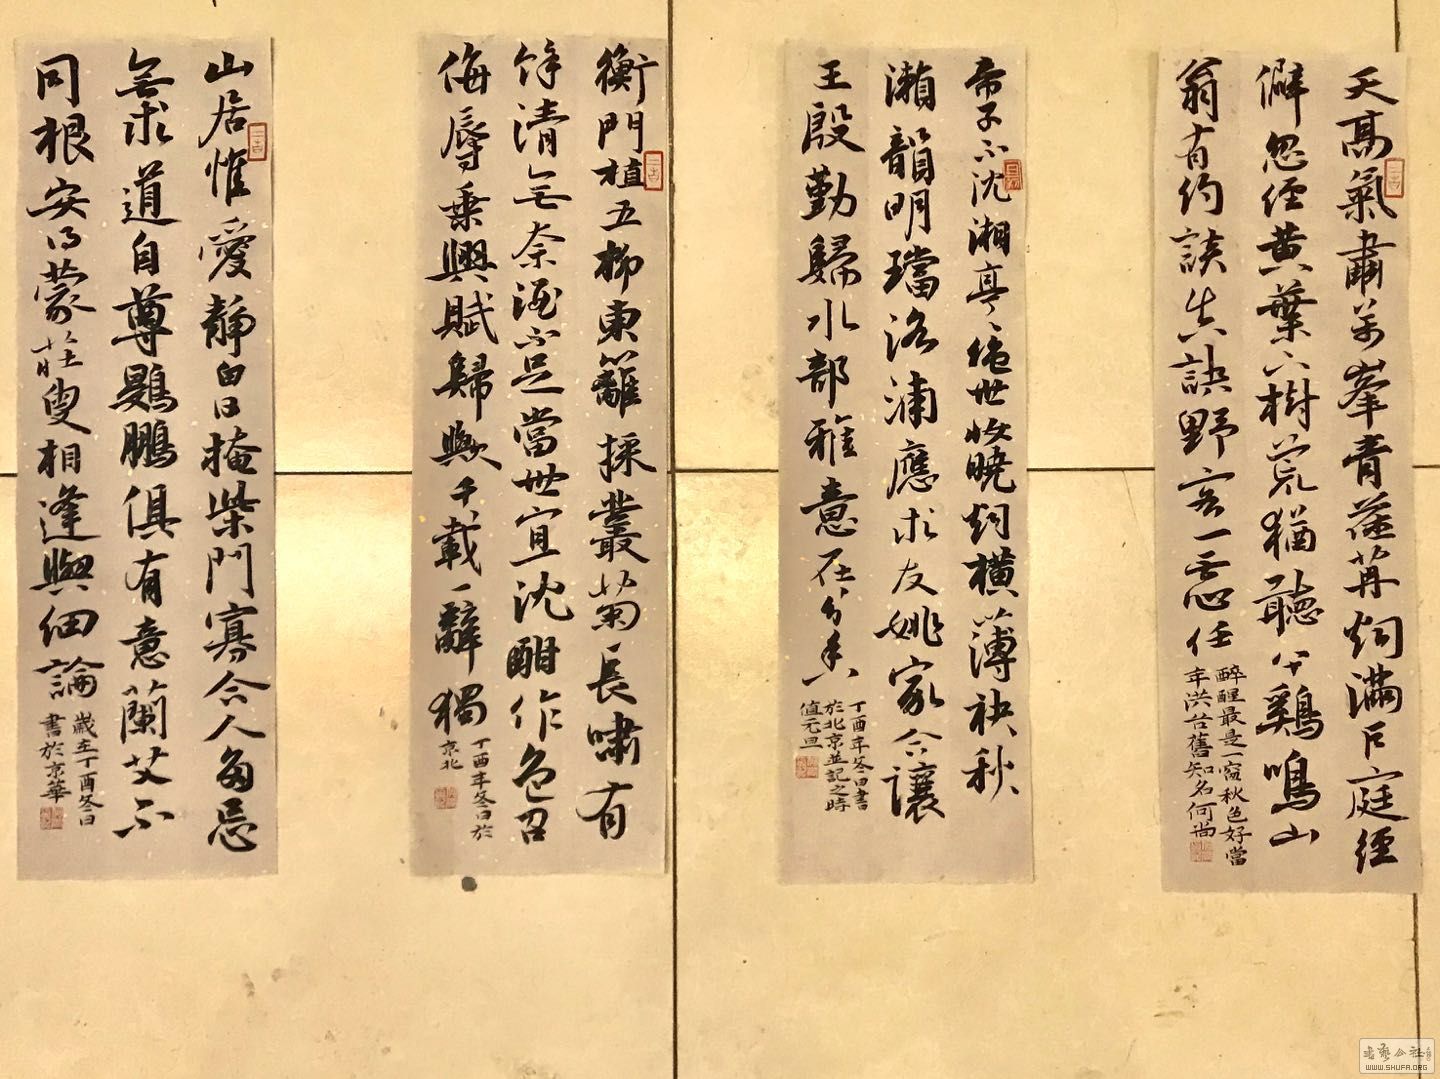 天高氣肅萬峯青荏苒烟滿戶庭徑
僻忽經黃葉下樹荒猶聽午鷄鳴山
翁有約談真訣野客一忘任
醉醒最是一窗秋色好當
年洪谷舊知名何尚
帝子不沈湘亭亭絕世妝曉烟橫薄袂秋
瀨韻明璫洛浦應求友姚家合讓
王殷勤歸水部雅意在分香
丁酉年冬日書
於北京並記之時
值元旦
衡門植五柳東籬採叢菊長嘯有
餘清無奈酒不足當世宜沈酣作色召
侮辱乘興賦歸歟千載一辭獨
丁酉年冬日於
京北
山居惟愛靜白日掩柴門寡合人多忌
無求道自尊鷃鵬俱有意蘭艾不
同根安得蒙莊叟相逢與細論
歲在丁酉冬日
書於京華
書藝公社
WWW.SHUFA.ORG